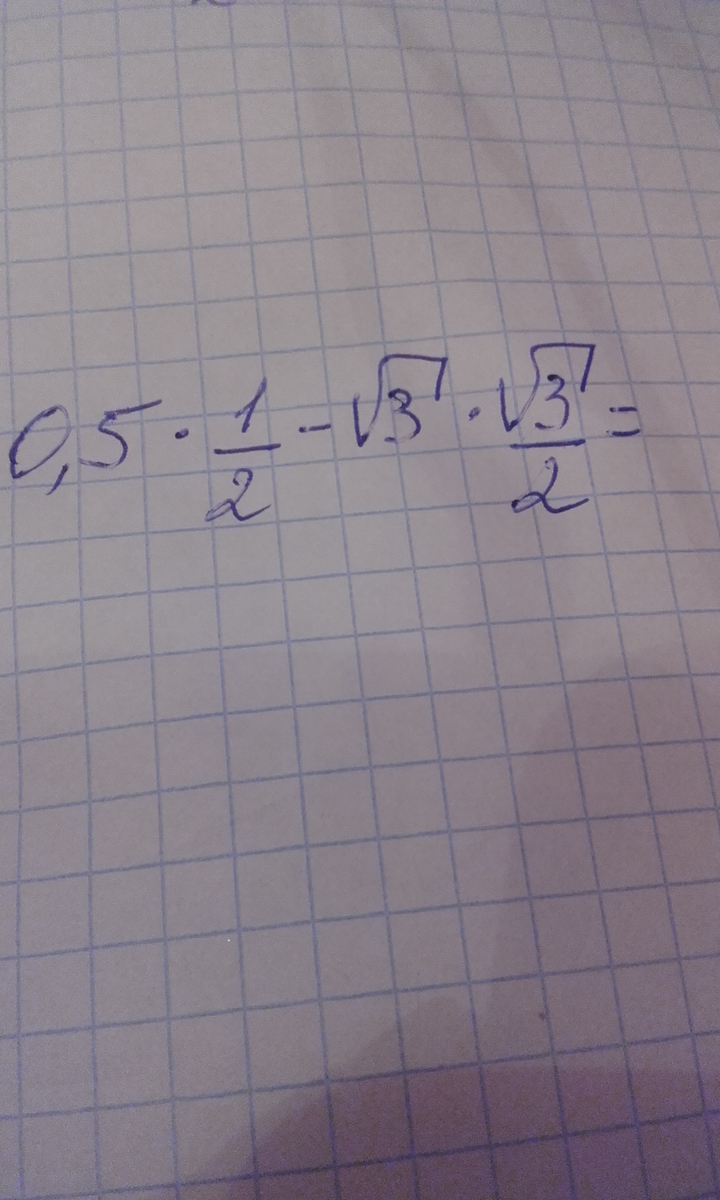 0,5 · 1/2 - √3 · √3/2 =